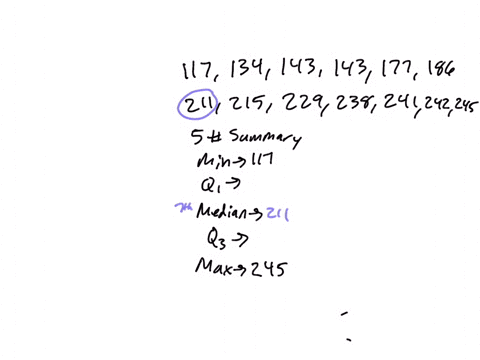 117, 134, 143, 143, 177, 186
211, 215, 229, 238, 241, 242, 245
5 # Summary
Min→117
Q1→
7th Median→211
Q3→
Max→245